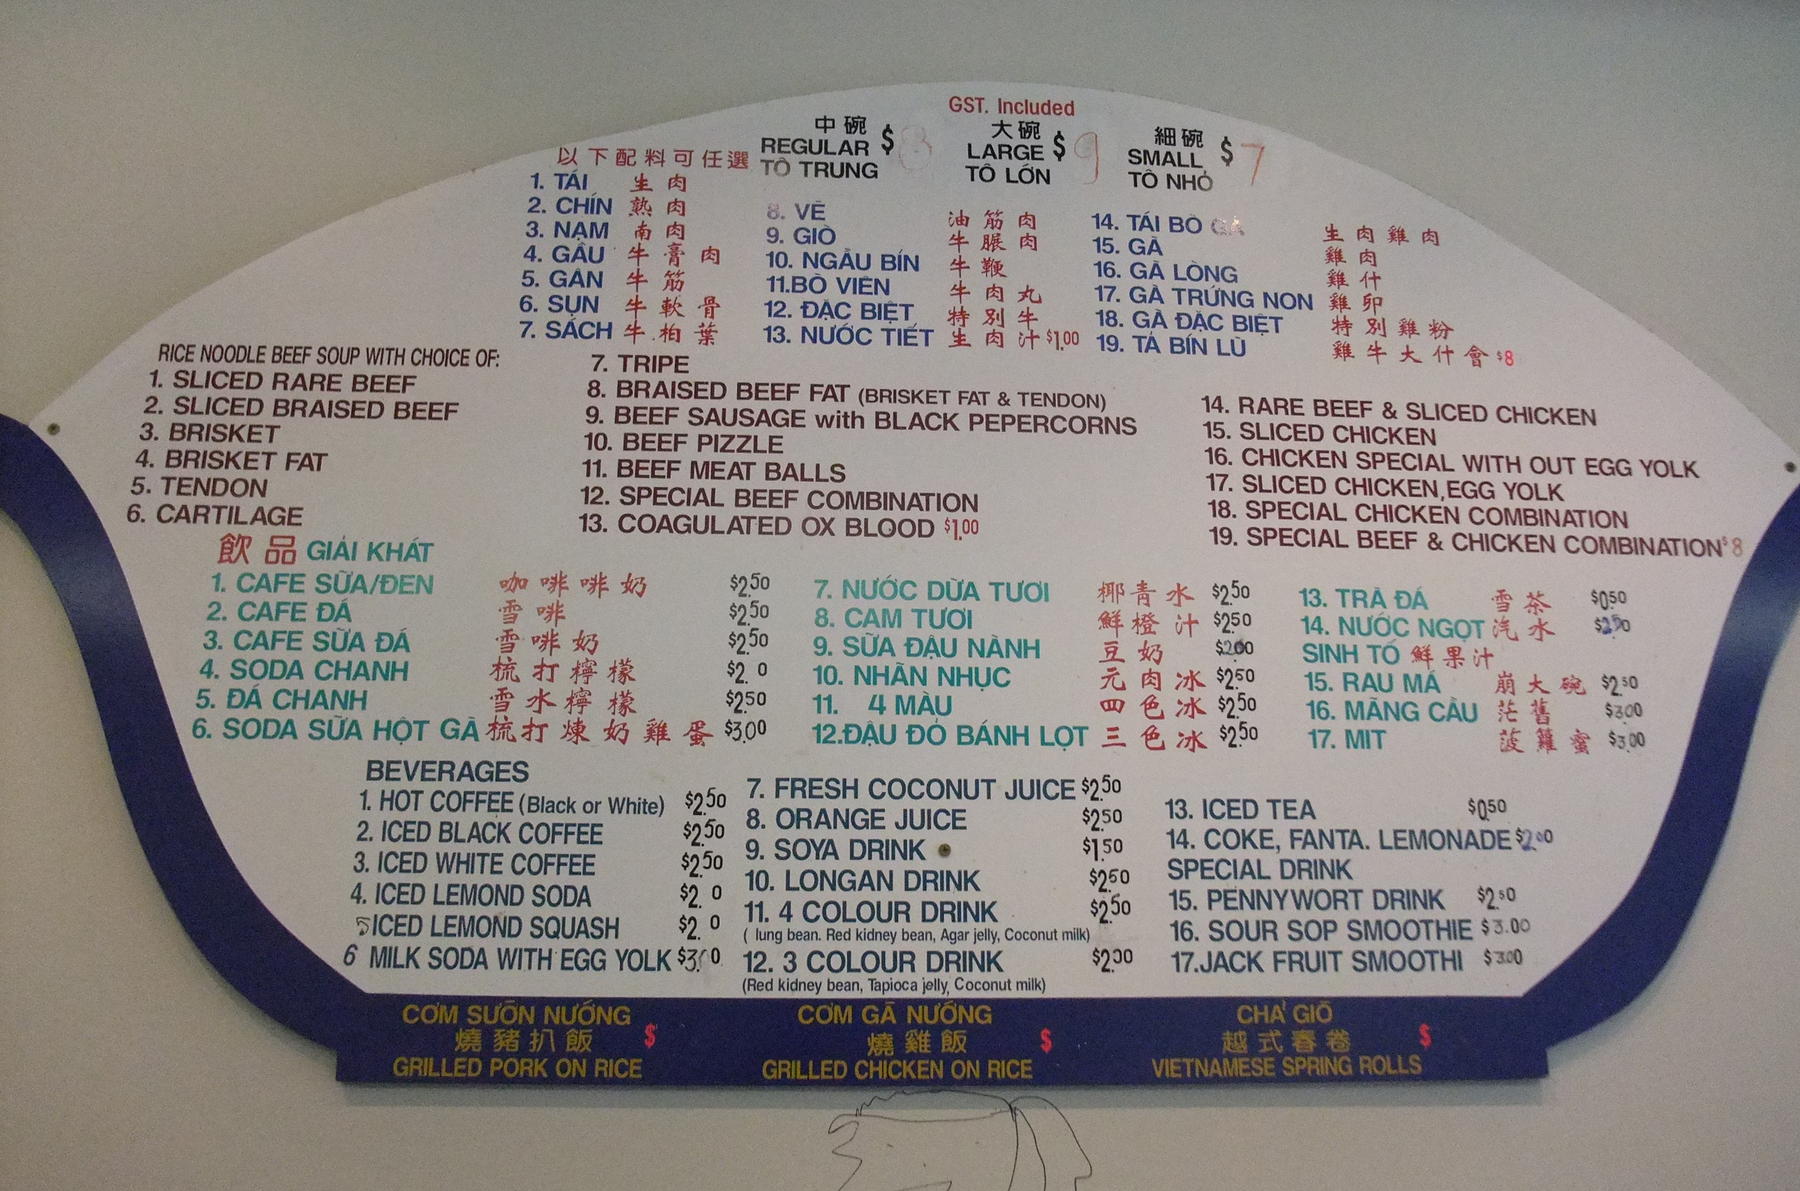 GST. Included
以下配料可任選
中碗
REGULAR $8
TÔ TRUNG
大碗
LARGE $9
TÔ LỚN
細碗
SMALL $7
TÔ NHỎ
1. TÁI 生肉
2. CHÍN 熟肉
3. NẠM 南肉
4. GẦU 牛膏肉
5. GÂN 牛筋
6. SỤN 牛軟骨
7. SÁCH 牛柏葉
8. VÈ 油筋肉
9. GIÒ 牛䐁肉
10. NGẦU BÍN 牛鞭
11.BÒ VIÊN 牛肉丸
12. ĐẶC BIỆT 特別牛
13. NƯỚC TIẾT 生肉汁 $1.00
14. TÁI BÒ GÀ 生肉雞肉
15. GÀ 雞肉
16. GÀ LÒNG 雞什
17. GÀ TRỨNG NON 雞卵
18. GÀ ĐẶC BIỆT 特別雞粉
19. TẢ BÍN LÙ 雞牛大什會 $8
RICE NOODLE BEEF SOUP WITH CHOICE OF:
1. SLICED RARE BEEF
2. SLICED BRAISED BEEF
3. BRISKET
4. BRISKET FAT
5. TENDON
6. CARTILAGE
7. TRIPE
8. BRAISED BEEF FAT (BRISKET FAT & TENDON)
9. BEEF SAUSAGE with BLACK PEPERCORNS
10. BEEF PIZZLE
11. BEEF MEAT BALLS
12. SPECIAL BEEF COMBINATION
13. COAGULATED OX BLOOD $1.00
14. RARE BEEF & SLICED CHICKEN
15. SLICED CHICKEN
16. CHICKEN SPECIAL WITH OUT EGG YOLK
17. SLICED CHICKEN,EGG YOLK
18. SPECIAL CHICKEN COMBINATION
19. SPECIAL BEEF & CHICKEN COMBINATION $8
飲品 GIẢI KHÁT
1. CAFE SỮA/ĐEN 咖啡啡奶 $2.50
2. CAFE ĐÁ 雪啡 $2.50
3. CAFE SỮA ĐÁ 雪啡奶 $2.50
4. SODA CHANH 梳打檸檬 $2. 0
5. ĐÁ CHANH 雪水檸檬 $2.50
6. SODA SỮA HỘT GÀ 梳打煉奶雞蛋 $3.00
7. NƯỚC DỪA TƯƠI 椰青水 $2.50
8. CAM TƯƠI 鮮橙汁 $2.50
9. SỮA ĐẬU NÀNH 豆奶 $2.00
10. NHÃN NHỤC 元肉冰 $2.50
11. 4 MÀU 四色冰 $2.50
12.ĐẬU ĐỎ BÁNH LỌT 三色冰 $2.50
13. TRÀ ĐÁ 雪茶 $0.50
14. NƯỚC NGỌT 汽水
SINH TỐ 鮮果汁
15. RAU MÁ 崩大碗 $2.50
16. MÃNG CẦU 茫舊 $3.00
17. MIT 菠籮蜜 $3.00
BEVERAGES
1. HOT COFFEE (Black or White) $2.50
2. ICED BLACK COFFEE $2.50
3. ICED WHITE COFFEE $2.50
4. ICED LEMOND SODA $2. 0
5 ICED LEMOND SQUASH $2. 0
6 MILK SODA WITH EGG YOLK
7. FRESH COCONUT JUICE $2.50
8. ORANGE JUICE $2.50
9. SOYA DRINK $1.50
10. LONGAN DRINK $2.50
11. 4 COLOUR DRINK $2.50
( lung bean. Red kidney bean, Agar jelly, Coconut milk)
12. 3 COLOUR DRINK
(Red kidney bean, Tapioca jelly, Coconut milk)
13. ICED TEA $0.50
14. COKE, FANTA. LEMONADE $2.00
SPECIAL DRINK
15. PENNYWORT DRINK $2.50
16. SOUR SOP SMOOTHIE $3.00
17.JACK FRUIT SMOOTHI $3.00
CƠM SƯỜN NƯỚNG
燒豬扒飯 $
GRILLED PORK ON RICE
CƠM GÀ NƯỚNG
燒雞飯 $
GRILLED CHICKEN ON RICE
CHẢ GIÒ
越式春卷 $
VIETNAMESE SPRING ROLLS